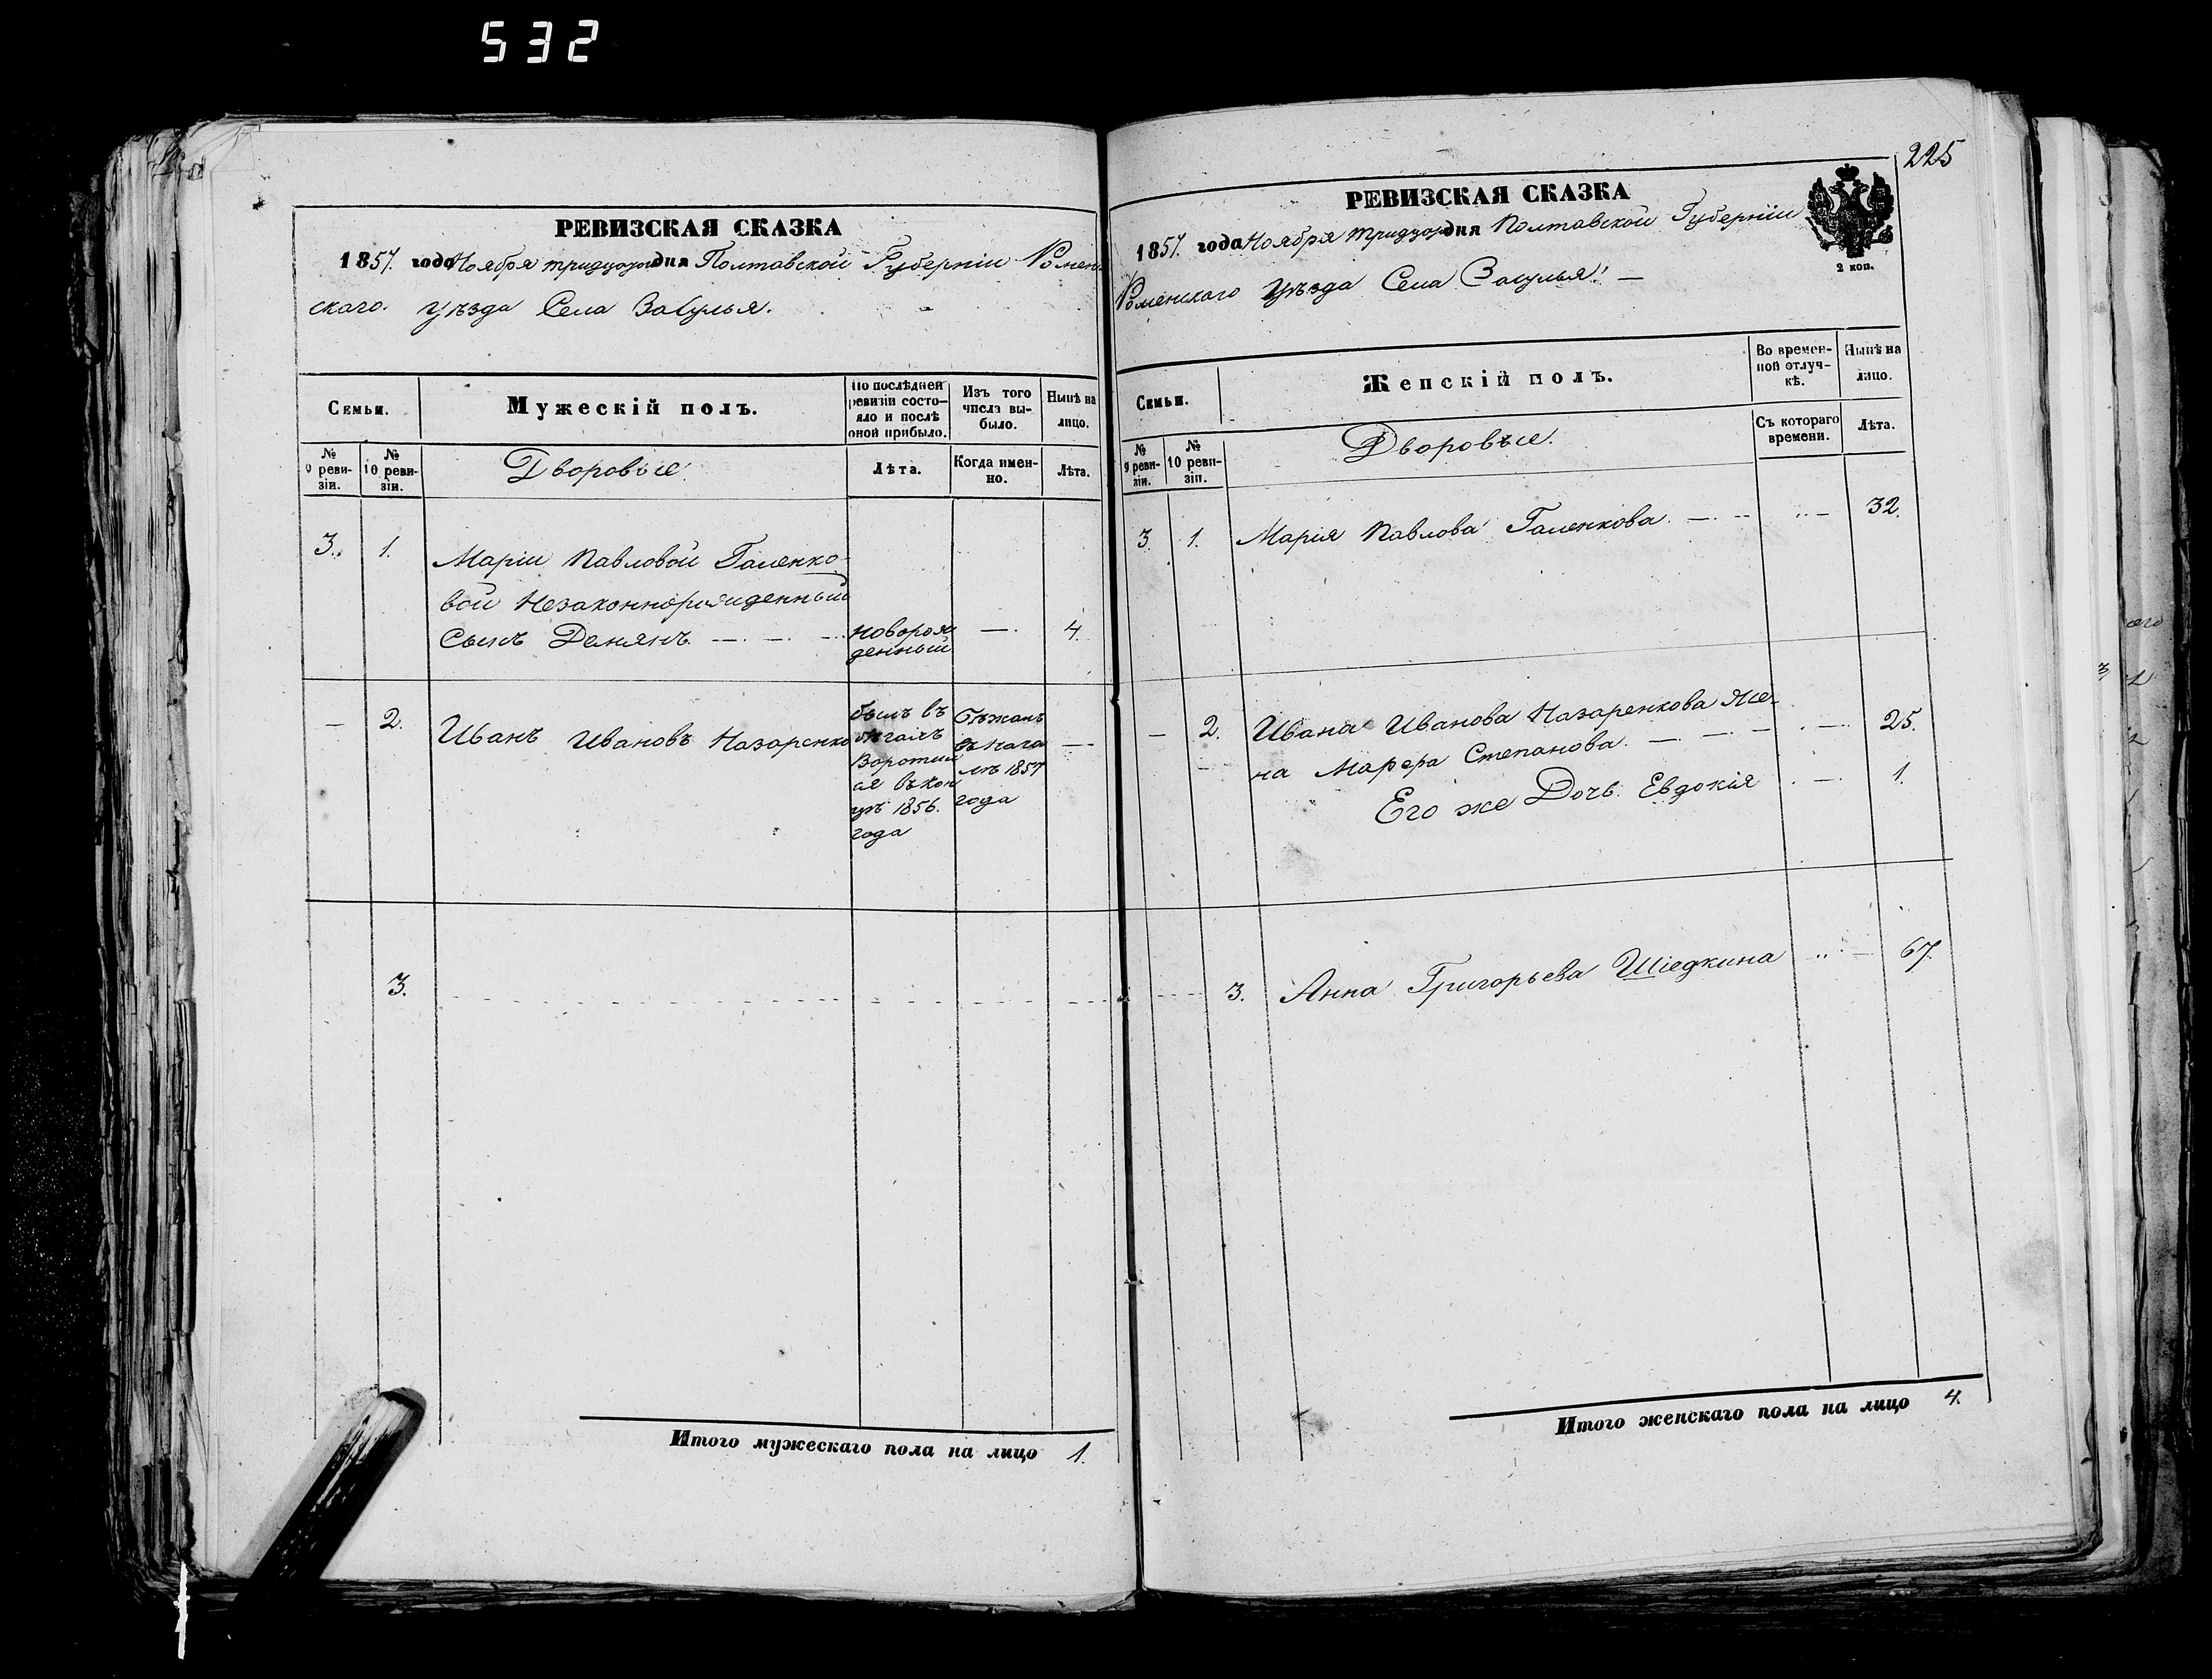 532
РЕВИЗСКАЯ СКАЗКА
1857. года Ноября тридцатого дня Полтавской Губерніи Ромен
скаго. Уѣзда Села Засулья.
Семьи.
Мужескій полъ.
По послѣдней ревизіи состо-
яло и послѣ
оной прибыло.
Изъ того
числа вы-
было.
Нынѣ на
лицо.
№
9 реви-
зіи.
№
10 реви-
зіи.
Дворовые.
Лѣта.
Когда имен-
но.
Лѣта.
3. 1. Маріи Павловой Галенко-
вой Незаконнорожденный
Сынъ Демянъ — — — новорож
денный — 4.
— 2. Иванъ Ивановъ Назаренко
былъ въ
бѣгахъ
Воротил
ся въ кон
цѣ 1856.
года
Бѣжалъ
въ нача
лѣ 1857
года
—
3.
Итого мужескаго пола на лицо 1.
225
РЕВИЗСКАЯ СКАЗКА
1857. года Ноября тридцатого дня Полтавской Губерніи
Роменскаго Уѣзда Села Засулья. —
2 коп.
Семьи.
Женскій полъ.
Во времен-
ной отлуч-
кѣ.
Нынѣ на
лицо.
№
9 реви-
зіи.
№
10 реви-
зіи.
Дворовые.
Съ котораго
времени.
Лѣта.
3. 1. Марія Павлова Галенкова. — 32.
— 2. Ивана Иванова Назаренкова Же-
на Марфа Степанова. — — — 25.
Его же Дочь Евдокія — 1.
3. Анна Григорьева — 67.
Итого женскаго пола на лицо 4.